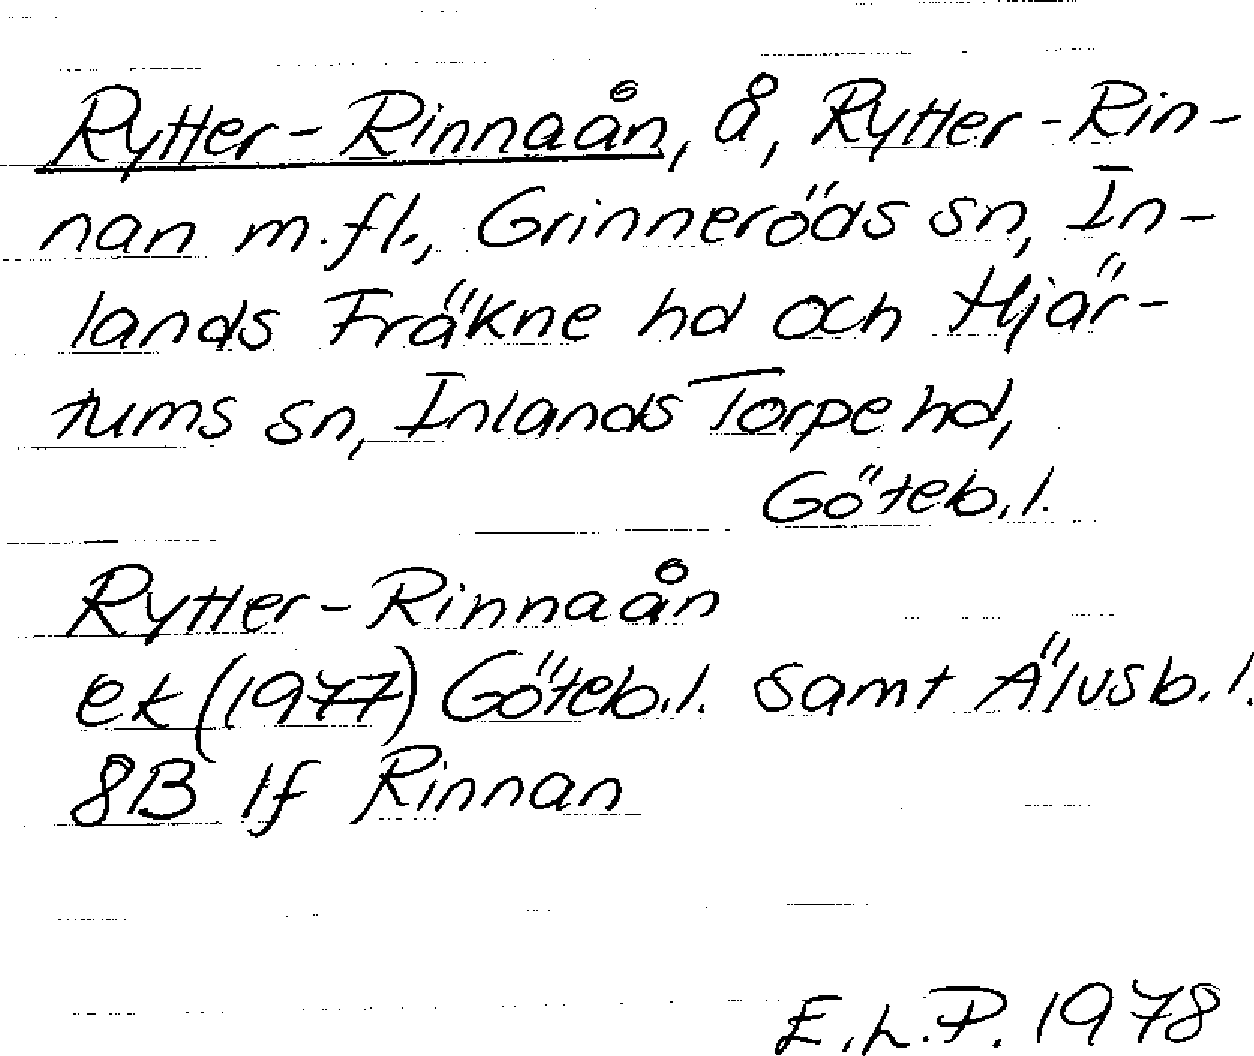 Rytter-Rinnaån, å, Rytter-Rin-
nan m.fl., Grinneröds sn, In-
lands Fräkne hd och Hjär-
tums sn, Inlands Torpe hd,
Göteb.l.
Rytter-Rinnaån
ek (1977) Göteb.l. samt Älvsb.l.
8B 1f Rinnan
E.L.P. 1978